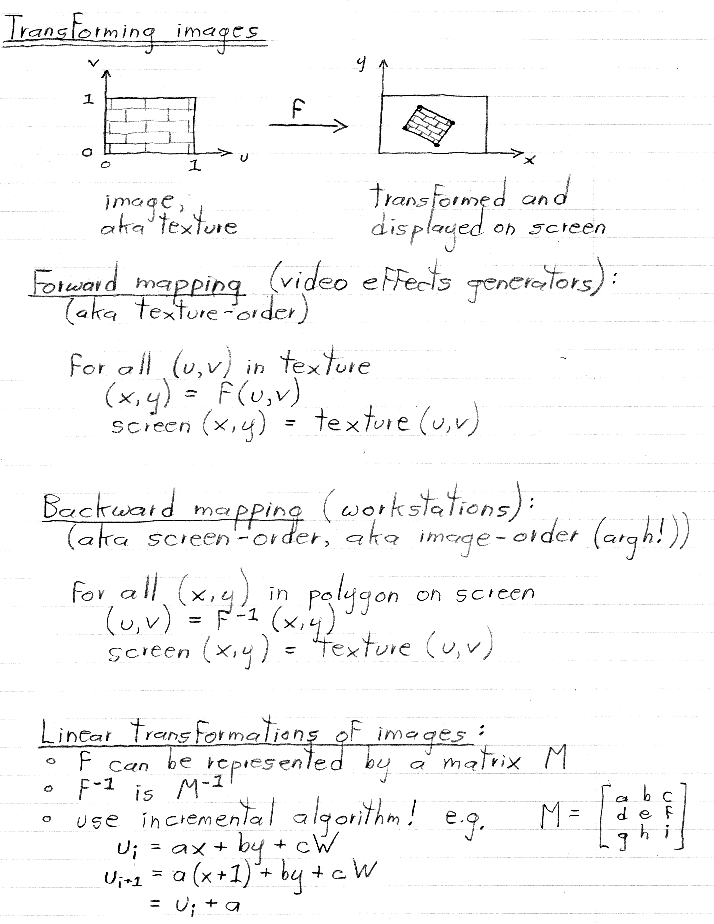 Transforming images
v
y
1
F
0
u
0
1
x
image,
aka texture
transformed and
displayed on screen
Forward mapping (video effects generators):
(aka texture-order)
for all (u,v) in texture
(x,y) = F(u,v)
screen (x,y) = texture (u,v)
Backward mapping (workstations):
(aka screen-order, aka image-order (argh!))
for all (x,y) in polygon on screen
(u,v) = F⁻¹ (x,y)
screen (x,y) = texture (u,v)
Linear transformations of images:
∘ F can be represented by a matrix M
∘ F⁻¹ is M⁻¹
∘ use incremental algorithm! e.g.
M = [a b c
d e f
g h i]
uᵢ = ax + by + cW
uᵢ₊₁ = a(x+1) + by + cW
= uᵢ + a